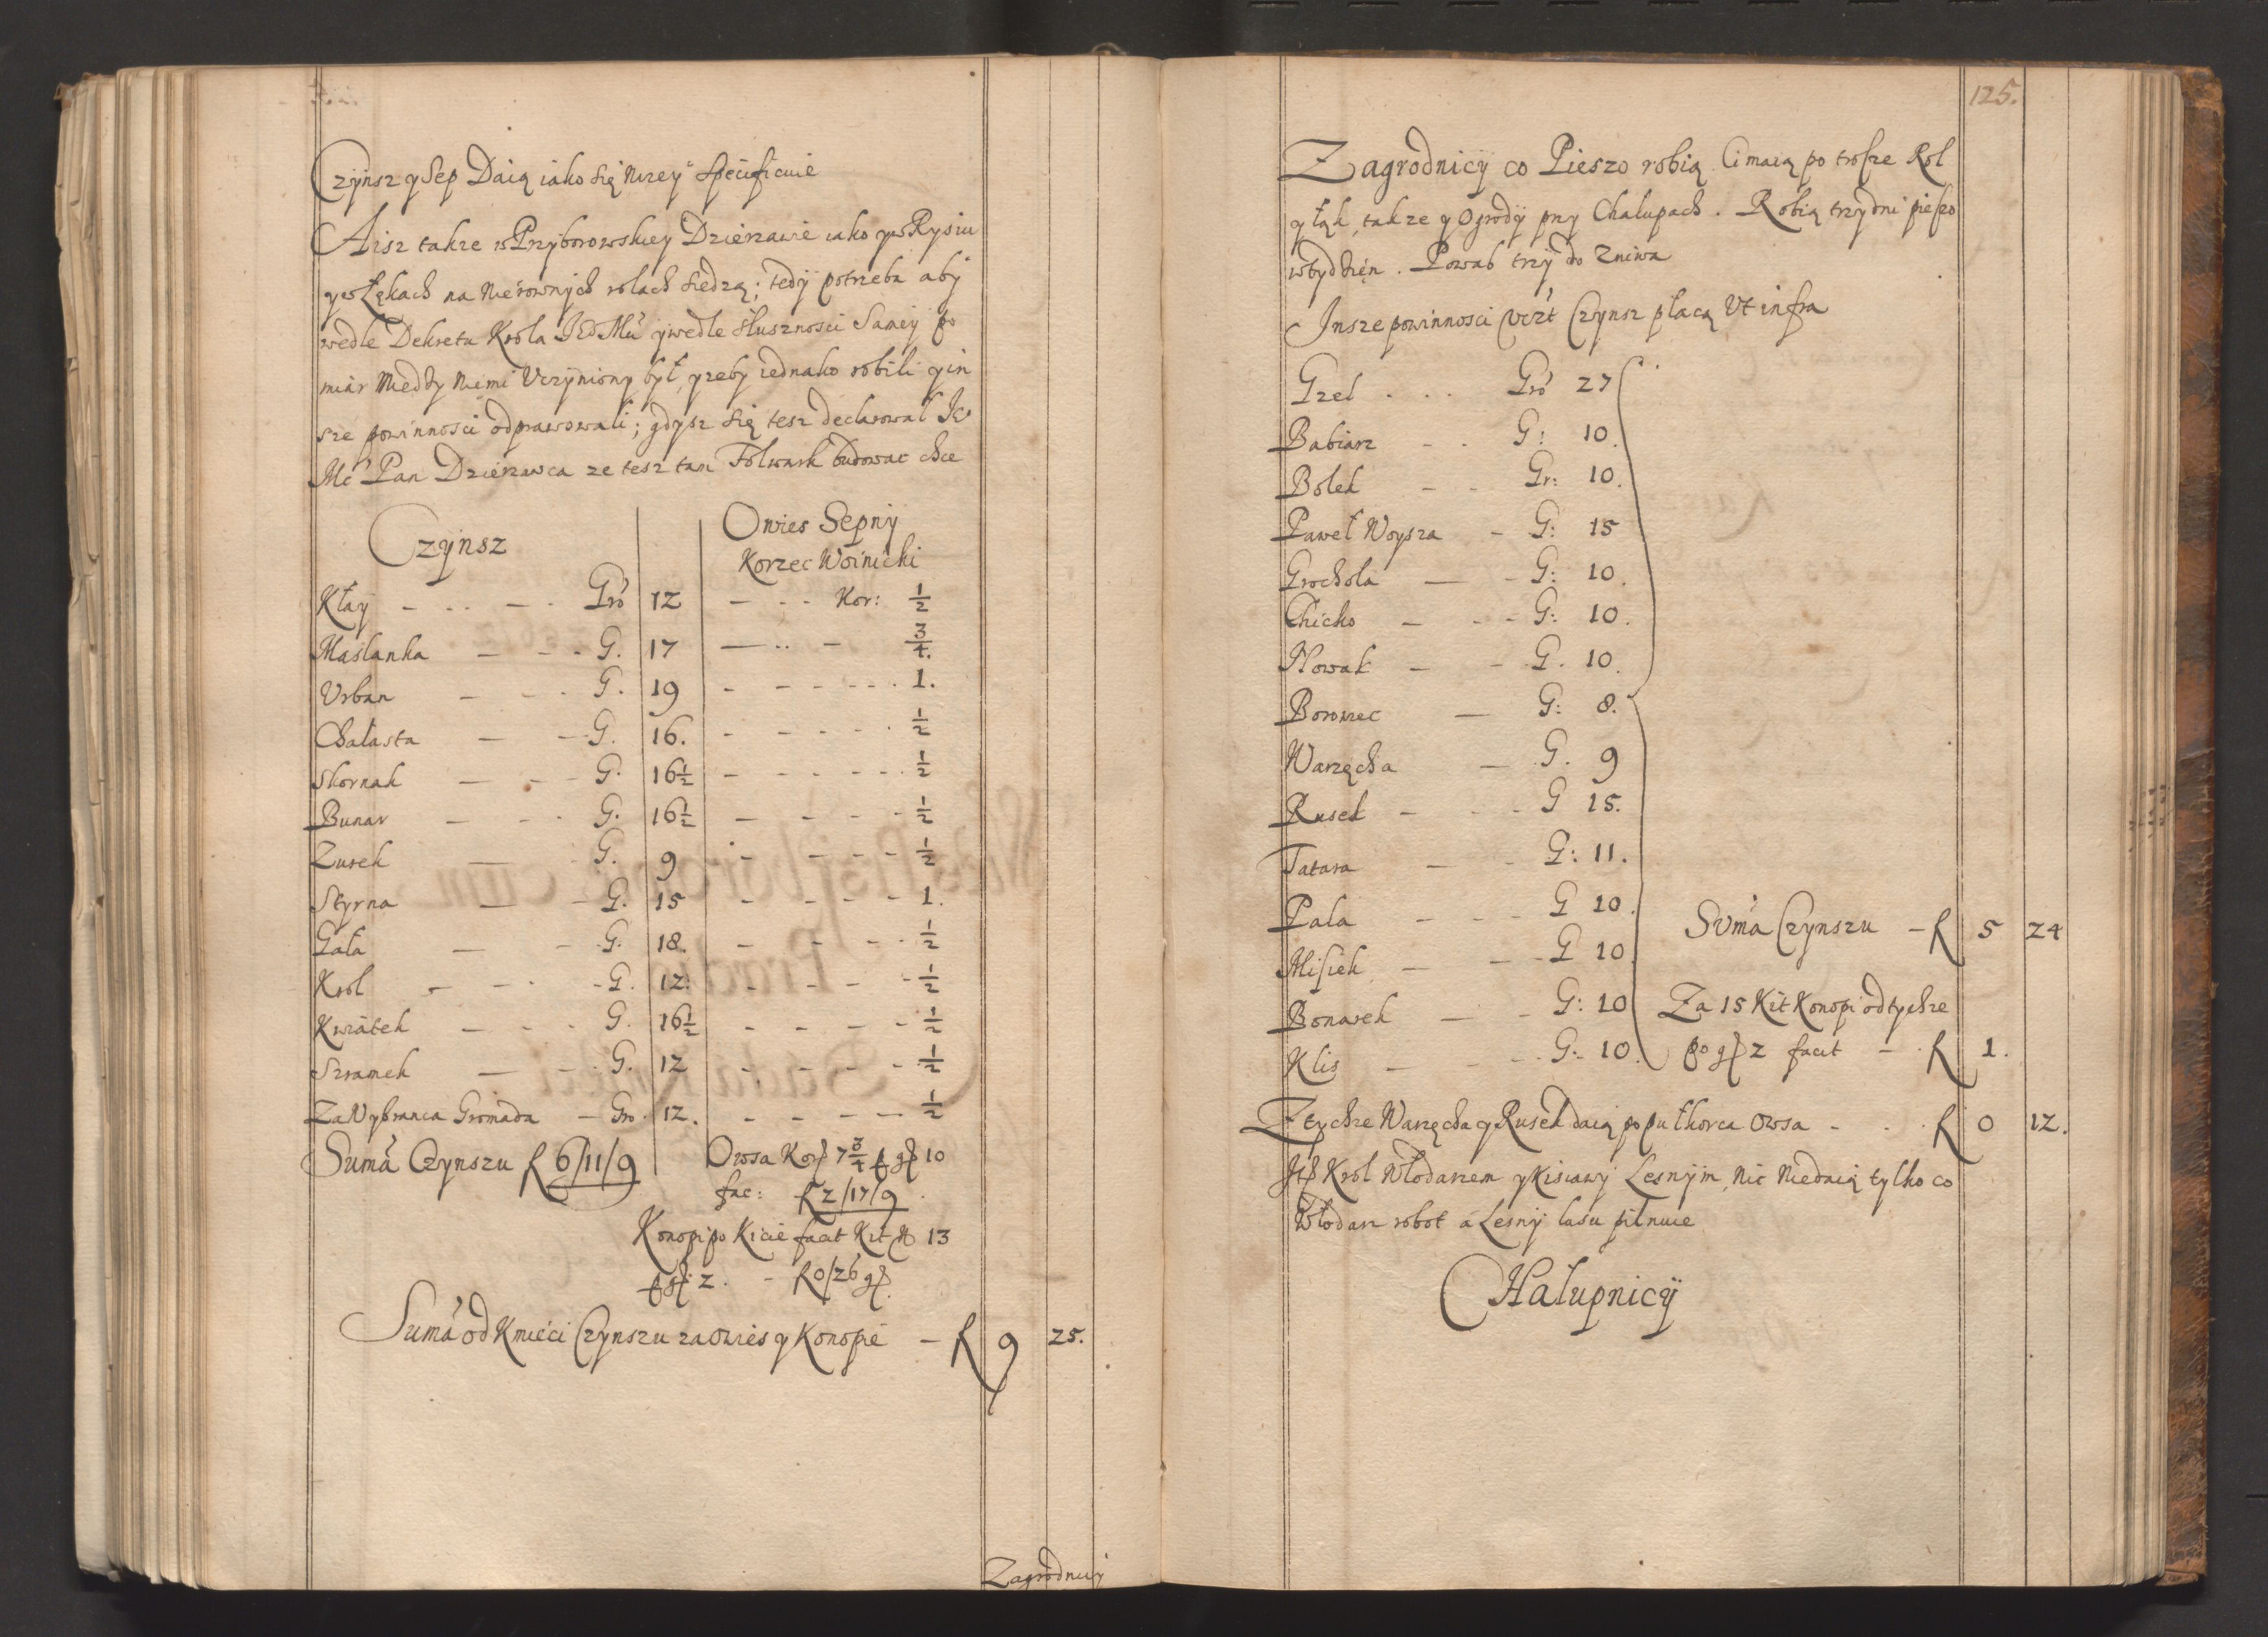 Czÿnsz y Sep Daią iako się Nizey specificuie
A isz takze w Przyborowskiey Dzierzawie iako y w Rysiu
y w Łękach na Nierownych rolach siedzą; tedÿ potrzeba abÿ
wedle Dekretu Krola IEo Mu ÿ wedle słusznosci Samey po
miar Miedzÿ Nimi Vczÿniony był, y zeby iednako robili y in
sze powinnosci odprawowali; gdysz się tesz declarowal Ie
Mć Pan Dzierzawca ze tesz tam Folwark budowac chce
Czÿnsz
Owies Sepnÿ
Korzec Woinicki
Kłaÿ - - - Gro 12 - - Kor: ½
Maslanka - - - G. 17 - - - ¾.
Vrban - - - G. 19 - - - 1.
Chałasta - - - G. 16. - - - ½
Skornak - - - G. 16½ - - - ½
Bunar - - - G. 16½ - - - ½
Zurek - - G. 9 - - - ½
Styrna - - G. 15 - - - 1.
Gała - - G. 18. - - - ½
Krol - - - G. 12. - - - ½
Kwiatek - - - G. 16½ - - - ½
Szramek - - G. 12 - - - ½
Za Wybranca Gromada - Gro. 12. - - - ½
Suma Czynszu f 6/11/9
Owsa Kor 7¾ p gr 10
fac: f 2/17/9
Konopi po Kicie facit Kit N 13
p gr 2. - f 0/26 gr.
Suma od Kmieci Czynszu za Owies y Konopie - f 9 25.
Zagrodnicy
125.
Zagrodnicÿ co Pieszo robią. Ci maią po trosze Rol
y łąk, takze y Ogrodÿ przy Chalupach. Robią trzy dni pieszo
w tydzięn. Powab trzÿ do Zniwa
Insze powinnosci Vczt Czÿnsz płacą Vt infra
Gzel . . . Gro 27
Babiarz - - G: 10.
Bolek - - Gr: 10.
Paweł Woysza - G: 15
Grochola - - G: 10.
Chicko - - - G: 10.
Nowak - - G. 10.
Borowiec - G: 8.
Warzęcha - G. 9
Rusek - - - G 15.
Tatara - - G: 11.
Pala - - - G 10.
Misiek - - - G 10
Bonarek - - G: 10
Klis - - - G: 10.
Suma Czynszu - f 5 24
Za 15 Kit Konopi od tychze
po gr 2 facit - f 1.
Z tychze Warzęcha y Rusek daią po pułkorca Owsa - . . f 0 12.
Jest Krol Włodarzem y Kisiawy Lesnÿm, Nic Niedaią tylko co
Włodarz robot a Lesnÿ lasu pilnuie
CHałupnicÿ